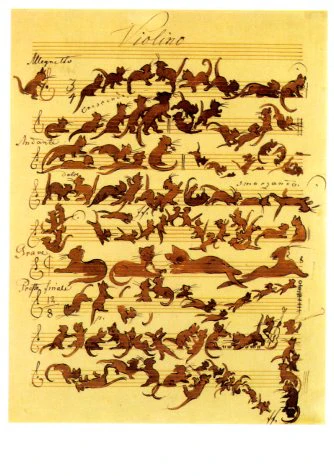 Violino
Allegretto
Crescendo
Andante
dolce
smorzando.
Grave
Presto finale
12
8
p.